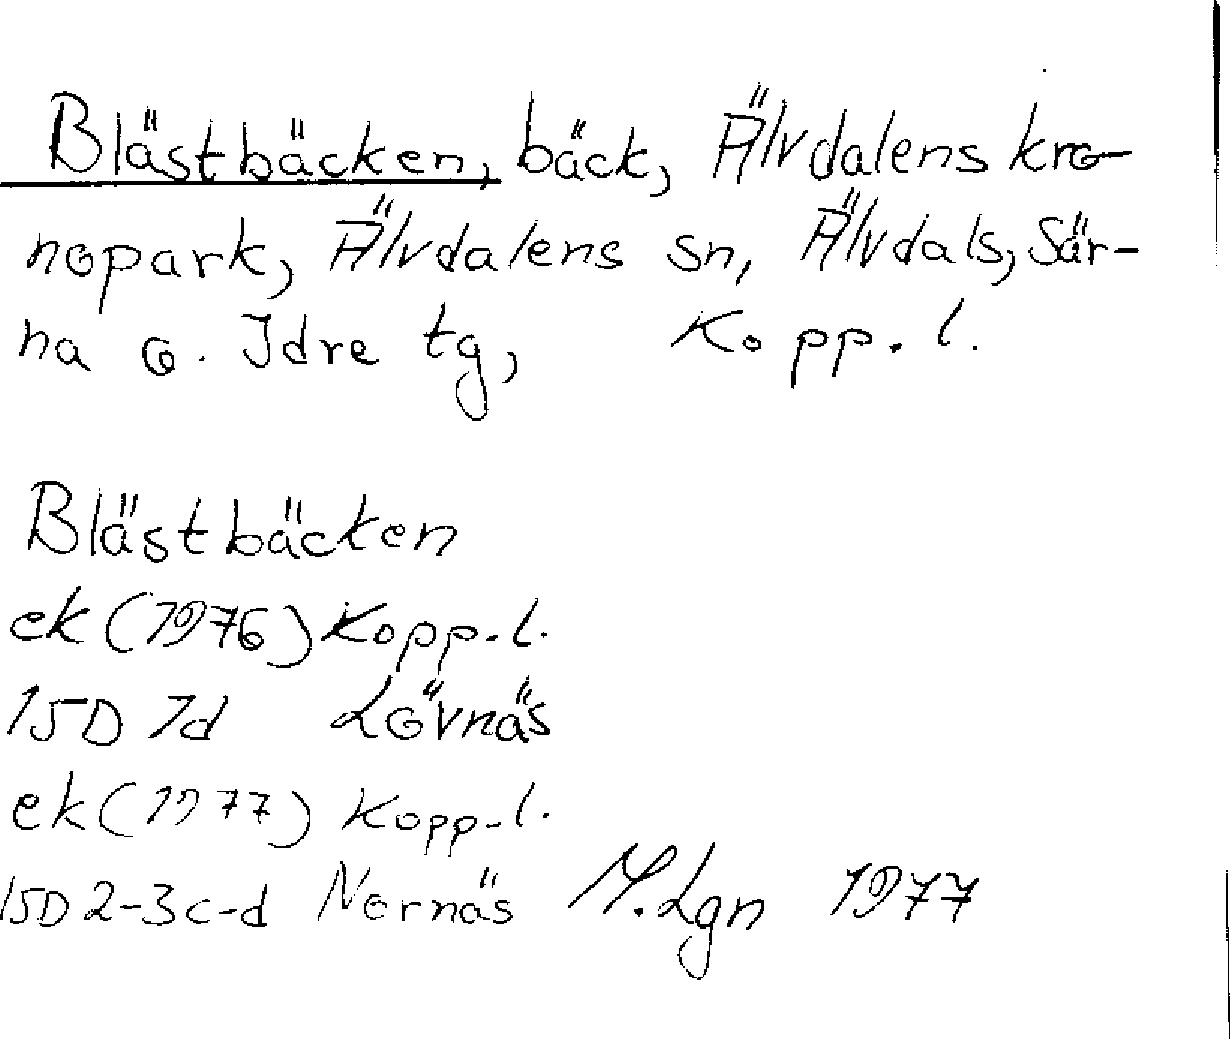 Blästbäcken, bäck, Älvdalens kro-
nopark, Älvdalens sn, Älvdals, Sär-
na o. Idre tg, Kopp. l.
Blästbäcken
ek (1976) Kopp. l.
15D 1d Lövnäs
ek (1977) Kopp. l.
15D 2-3 c-d Nornäs M. Lgn 1977